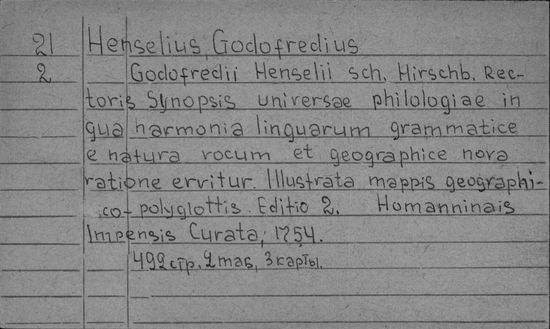 21 Henselius, Godofredius
2 Godofredii Henselii sch. Hirschb. Rec-
toris Synopsis universae philologiae in
qua harmonia linguarum grammatice
e natura vocum et geographice nova
ratione ervitur. Illustrata mappis geographi-
ico-polyglottis. Editio 2. Homanninais
Impensis Curata, 1754.
492 стр. 2 таб, 3 карты.